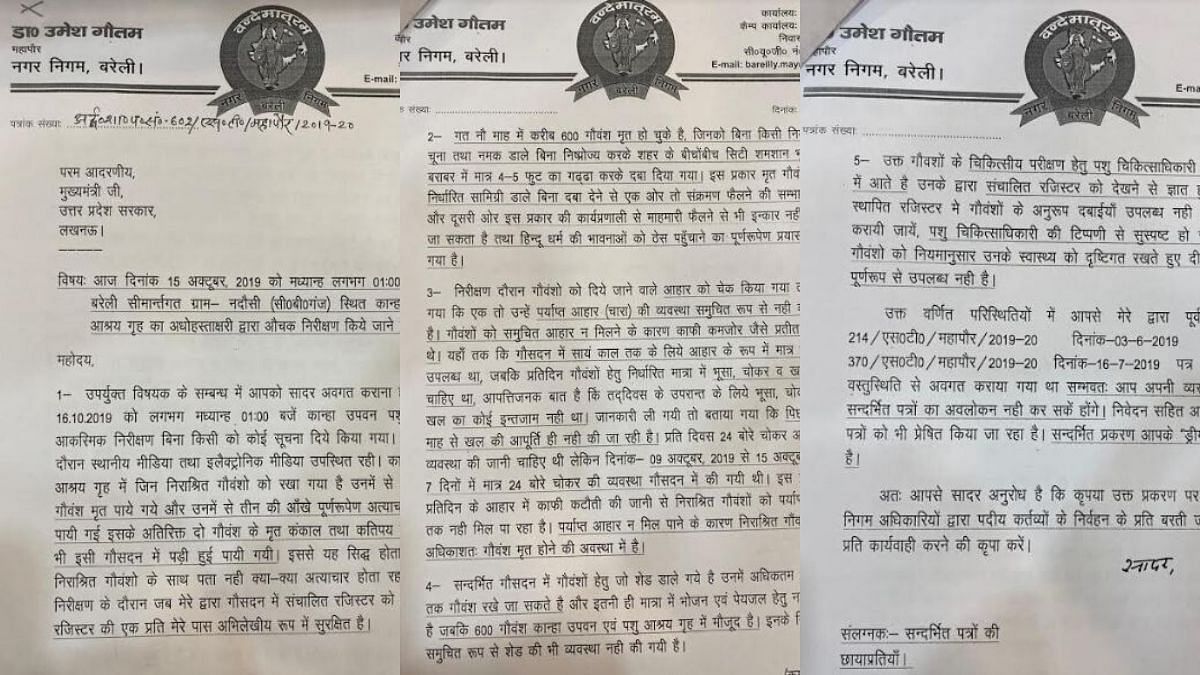 डा0 उमेश गौतम
महापौर
नगर निगम, बरेली।
वन्देमातरम्
नगर निगम
बरेली
E-mail:
पत्रांक संख्या:
602/एस0टी0/महापौर/2019-20
परम आदरणीय,
मुख्यमंत्री जी,
उत्तर प्रदेश सरकार,
लखनऊ।
विषयः आज दिनांक 15 अक्टूबर, 2019 को मध्यान्ह लगभग 01:00
बरेली सीमार्न्तगत ग्राम– नदौसी (सी0बी0गंज) स्थित कान्ह
आश्रय गृह का अधोहस्ताक्षरी द्वारा औचक निरीक्षण किये जाने
महोदय,
1– उपर्युक्त विषयक के सम्बन्ध में आपको सादर अवगत कराना
16.10.2019 को लगभग मध्यान्ह 01:00 बजें कान्हा उपवन पशु
आकरिमक निरीक्षण बिना किसी को कोई सूचना दिये किया गया।
दौरान स्थानीय मीडिया तथा इलैक्ट्रोनिक मीडिया उपस्थित रही। का
आश्रय गृह में जिन निराश्रित गौवंशो को रखा गया है उनमें से
गौवंश मृत पाये गये और उनमें से तीन की आँखे पूर्णरूपेण अत्याच
पायी गई इसके अतिरिक्त दो गौवंश के मृत कंकाल तथा कतिपय
भी इसी गौसदन में पड़ी हुई पायी गयी। इससे यह सिद्ध होता
निराश्रित गौवंशो के साथ पता नही क्या–क्या अत्याचार होता रह
निरीक्षण के दौरान जब मेरे द्वारा गौसदन में संचालित रजिस्टर को
रजिस्टर की एक प्रति मेरे पास अभिलेखीय रूप में सुरक्षित है।
उमेश गौतम
नगर निगम, बरेली।
वन्देमातरम्
नगर निगम
बरेली
कार्यालय:
कैम्प कार्यालय:
निवास
सी०यू०जी० नं
E-mail: bareilly.may
संख्या:
दिनांक:
2– गत नौ माह में करीब 600 गौवंश मृत हो चुके है, जिनको बिना किसी नि
चूना तथा नमक डाले बिना निष्प्रोज्य करके शहर के बीचोंबीच सिटी शमशान
बराबर में मात्र 4–5 फुट का गढ्ढा करके दबा दिया गया। इस प्रकार मृत गौवं
निर्धारित सामिग्री डाले बिना दबा देने से एक ओर तो संक्रमण फैलने की सम्भा
और दूसरी ओर इस प्रकार की कार्यप्रणाली से माहमारी फैलने से भी इन्कार नही
जा सकता है तथा हिन्दू धर्म की भावनाओं को ठेस पहुँचाने का पूर्णरूपेण प्रयास
गया है।
3– निरीक्षण दौरान गौवंशो को दिये जाने वाले आहार को चेक किया गया
गया कि एक तो उन्हें पर्याप्त आहार (चारा) की व्यवस्था समुचित रूप से नही
है। गौवंशों को समुचित आहार न मिलने के कारण काफी कमजोर जैसे प्रतीत
थे। यहाँ तक कि गौसदन में सायं काल तक के लिये आहार के रूप में मात्र
उपलब्ध था, जबकि प्रतिदिन गौवंशों हेतु निर्धारित मात्रा में भूसा, चोकर व ख
चाहिए था, आपत्तिजनक बात है किं तद्दिवस के उपरान्त के लिये भूसा, चो
खल का कोई इन्तजाम नही था। जानकारी ली गयी तो बताया गया कि पिछ
माह से खल की आपूर्ति ही नही की जा रही है। प्रति दिवस 24 बोरे चोकर
व्यवस्था की जानी चाहिए थी लेकिन दिनांक– 09 अक्टूबर, 2019 से 15 अक्टूब
7 दिनों में मात्र 24 बोरे चोकर की व्यवस्था गौसदन में की गयी थी। इस
प्रतिदिन के आहार में काफी कटौती की जानी से निराश्रित गौवंशों को पर्या
तक नही मिल पा रहा है। पर्याप्त आहार न मिल पाने के कारण निराश्रित गौवं
अधिकाशतः गौवंश मृत होने की अवस्था में है।
4– सन्दर्भित गौसदन में गौवंशों हेतु जो शेड डाले गये है उनमें अधिकतम
तक गौवंश रखे जा सकते है और इतनी ही मात्रा में भोजन एवं पेयजल हेतु
है जबकि 600 गौवंश कान्हा उपवन एवं पशु आश्रय गृह में मौजूद है। इनके
समुचित रूप से शेड की भी व्यवस्था नही की गयी है।
उमेश गौतम
नगर निगम, बरेली।
वन्देमातरम्
नगर निगम
बरेली
E-ma
पत्रांक संख्या:
5– उक्त गौवशों के चिकित्सीय परीक्षण हेतु पशु चिकित्साधिकारी
में आते है उनके द्वारा संचालित रजिस्टर को देखने से ज्ञात
स्थापित रजिस्टर मे गौवंशों के अनुरूप दबाईयाँ उपलब्ध नही
करायी जायें, पशु चिकित्साधिकारी की टिप्पणी से सुस्पष्ट हो
गौवंशो को नियमानुसार उनके स्वास्थ्य को दृष्टिगत रखते हुए दी
पूर्णरूप से उपलब्ध नही है।
उक्त वर्णित परिस्थितियों में आपसे मेरे द्वारा पूर्व
214/एस0टी0/महापौर/2019-20 दिनांक–03-6-2019
370/एस0टी0/महापौर/2019-20 दिनांक–16-7-2019 पत्र
वस्तुस्थिति से अवगत कराया गया था सम्भवतः आप अपनी व्य
सन्दर्भित पत्रों का अवलोकन नही कर सकें होंगे। निवेदन सहित
पत्रों को भी प्रेषित किया जा रहा है। सन्दर्भित प्रकरण आपके "ड्री
है।
अतः आपसे सादर अनुरोध है कि कृपया उक्त प्रकरण पर
निगम अधिकारियों द्वारा पदीय कर्तव्यों के निर्वहन के प्रति बरती
प्रति कार्यवाही करने की कृपा करें।
सादर,
संलग्नकः– सन्दर्भित पत्रों की
छायाप्रतियाँ।